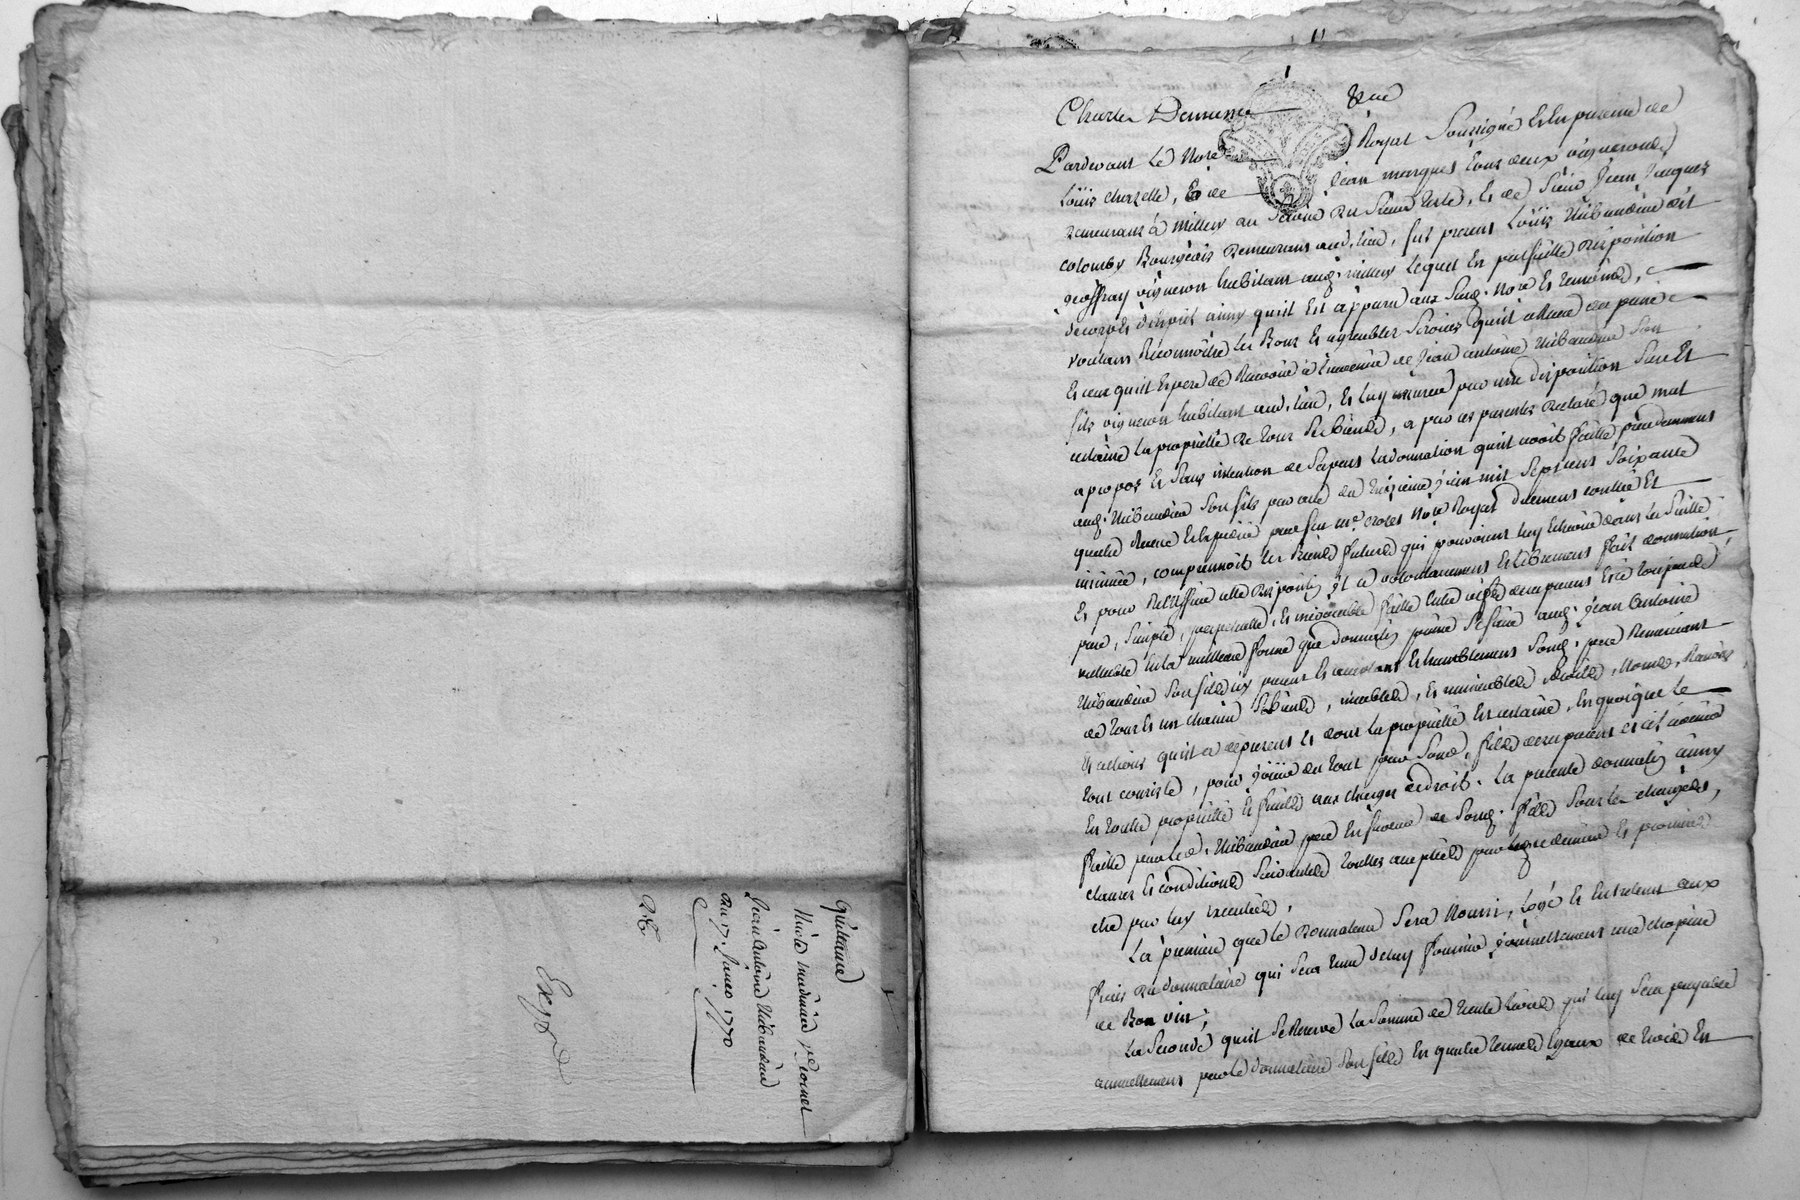 quittance
jean antoine Thibaudier
du 17. Janv. 1770
Exp.
Charles Demasse
Pardevant Le No.re Royal Soussigné Et En presence de
Loüis chazelle, Et de Jean marques tous deux vignerons
demeurans à millery au service du sieur teste, Et de Sieur Jean Jacques
colomby Bourgeois demeurans aud. lieu, fut present Loüis Thibaudier dit
geoffray vigneron habitant aud. millery lequel En parfaitte disposition
de corps Et d'esprit ainsy quil Est apparu aux susd. No.re Et temoins,
voulant Reconnoître les Bons Et agreables services quil a Receu
Et ceux quil Espere de Recevoir à l'avenir de Jean antoine Thibaudier son
fils vigneron habitant aud. lieu, Et luy assurer par une disposition sure Et
certaine la propriété de tous ses biens, a par ces presentes declaré que mal
apropos Et sans intention de sa part la donnation quil avoit faitte precedemment
aud. Thibaudier son fils par acte du treizieme juin mil sept cens soixante
quatre Receu Et Expedié par feu m.e No.re Royal duement controllé Et
insinuée, comprennoit les Biens futurs qui pouvoient luy Echeoir dans la suitte
Et pour Rectifier cette disposition il a volontairement Et librement fait donnation
pure, simple, perpetuelle, Et irrevocable faitte Entre vifs des a present Et a toujours
valable En la meilleure forme que donnation puisse se faire aud. jean antoine
Thibaudier son fils icy present Et acceptant Et humblement sond. pere Remerciant
de tous Et un chacun ses biens, meubles, Et immeubles, droits, Noms, Raisons
Et actions quil a de present Et dont la propriété Est certaine, En quoi que le
tout consiste, pour joüir du tout par sond. fils des a present et à l'avenir
En toutte propriété Et fruits aux charges de droit. La presente donnation ainsy
faitte par led. Thibaudier pere En faveur de sond. fils sous les charges,
clauses Et conditions suivantes touttes acceptées par ce dernier Et promises
etre par luy executées,
La premiere que le donnateur sera Nourri, logé Et Entretenu aux
frais du donnataire qui sera tenu de luy fournir journellement une chopine
de Bon vin;
La seconde quil se Reserve la somme de trente livres qui luy sera payable
annuellement par le donnataire son fils En quatre termes Egaux de trois En